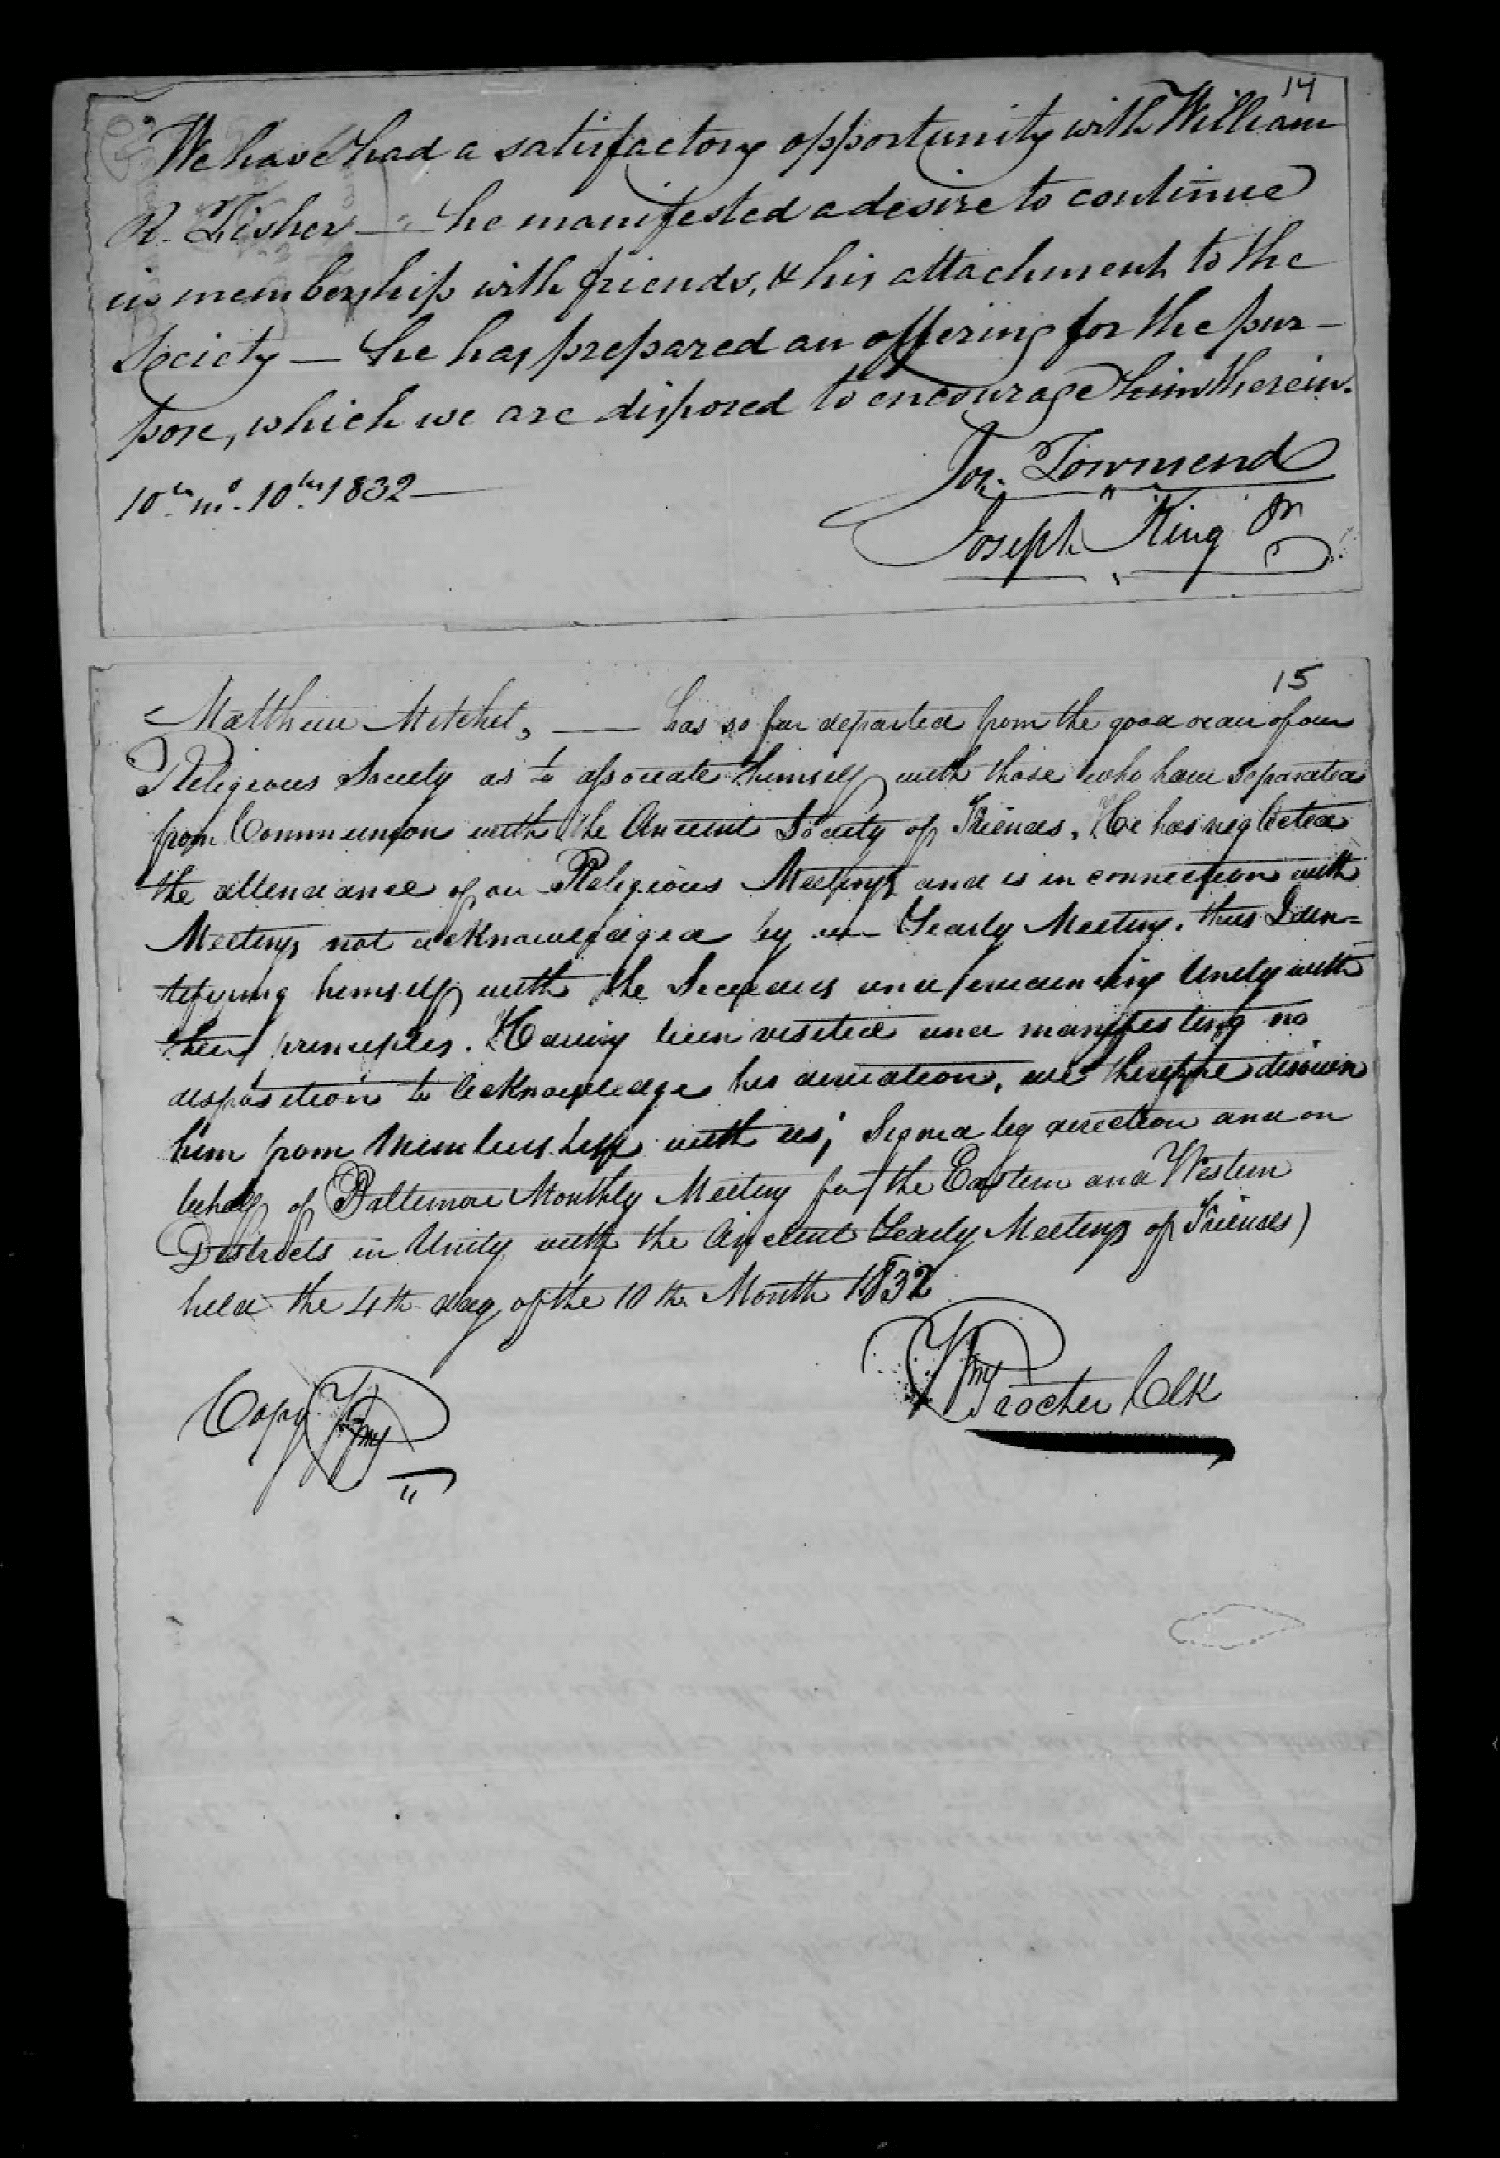 14
We have had a satisfactory opportunity with William
R. Fisher — he manifested a desire to continue
in membership with friends, & his attachment to the
Society — he has prepared an offering for the pur-
pose, which we are disposed to encourage him therein.
10th mo. 10th 1832 —
Jos. Townsend
Joseph King Jr
15
Matthew Mitchel, — has so far departed from the good order of our
Religious Society as to associate himself with those who have separated
from Communion with the Ancient Society of Friends. He has neglected
the attendance of our Religious Meetings and is in connection with
Meetings not acknowledged by our Yearly Meeting. thus Iden=
tifying himself with the Seceders and evidencing Unity with
their principles. Having been visited and manifesting no
disposition to Acknowledge his deviation, we therefore disown
him from Membership with us; Signed by direction and on
behalf of Baltimore Monthly Meeting for the Eastern and Western
Districts in Unity with the Ancient Yearly Meeting of Friends)
held the 4th day of the 10th Month 1832
Wm Procter Clk
Copy